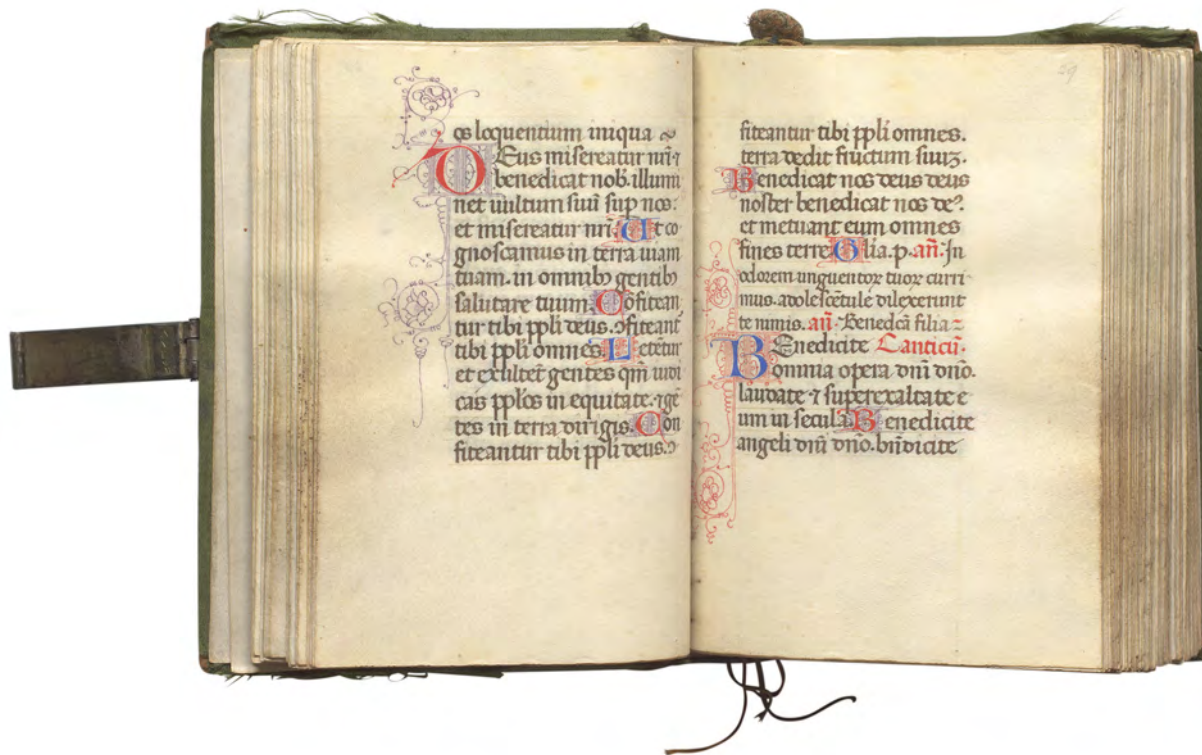 os loquentium iniqua ~
DEus misereatur nr̄i ⁊
benedicat nob. illumi
net uultum suū sup nos:
et misereatur nr̄i. Ut co
gnoscamus in terra uiam
tuam. in omnibꝫ gentibꝫ
salutare tuum. Cōfitean
tur tibi ppl̄i deus. ꝯfiteant᷑
tibi ppl̄i omnes. Letētur
et exultēt gentes qm̄ iudi
cas ppl̄os in equitate. ⁊ gē
tes in terra dirigis. Con
fiteantur tibi ppl̄i deus. ꝯ
59
fiteantur tibi ppl̄i omnes.
terra dedit fructum suuꝫ.
Benedicat nos deus deus
noster benedicat nos deꝰ.
et metuant eum omnes
fines terre. Gl̄ia. p. an̄. In
odorem unguentoꝝ tuoꝝ curri
mus. adolescētule dilexerunt
te nimis. an̄. Benedc̄a filia ~
BEnedicite Canticū.
omnia opera dn̄i dn̄o.
laudate ⁊ superexaltate e
um in secula. Benedicite
angeli dn̄i dn̄o. bn̄dicite